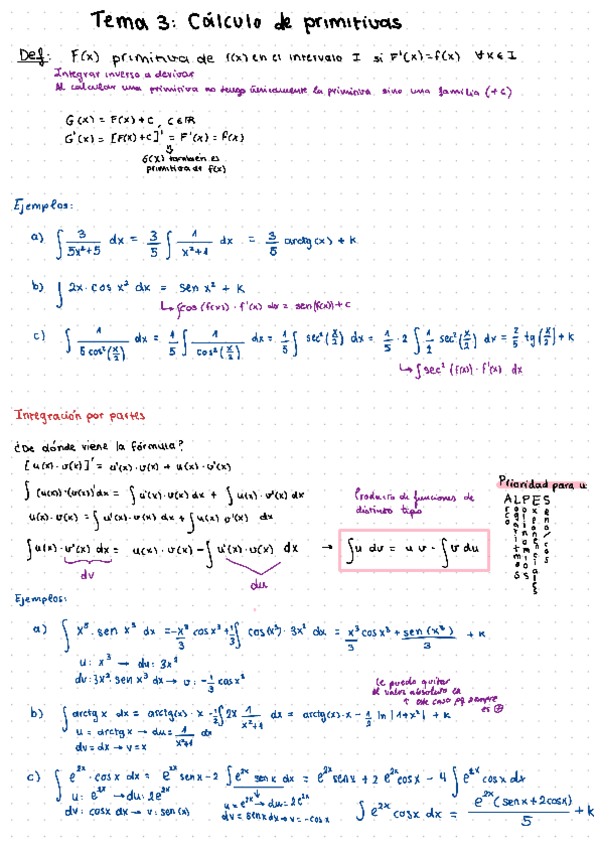 Tema 3: Cálculo de primitivas
Def: F(x) primitiva de f(x) en el intervalo I si F'(x)=f(x) ∀x∈I
Integrar inverso a derivar
Al calcular una primitiva no tengo únicamente la primitiva sino una familia (+c)
G(x) = F(x)+c, c∈ℝ
G'(x) = [F(x)+c]' = F'(x) = f(x)
⇓
G(x) también es
primitiva de f(x)
Ejemplos:
a) ∫ 3/(5x²+5) dx = 3/5 ∫ 1/(x²+1) dx = 3/5 arctg(x) + k
b) ∫ 2x · cos x² dx = sen x² + k
↳ ∫cos(f(x)) · f'(x) dx = sen(f(x))+c
c) ∫ 1/(5cos²(x/2)) dx = 1/5 ∫ 1/cos²(x/2) dx = 1/5 ∫ sec²(x/2) dx = 1/5 · 2 ∫ 1/2 sec²(x/2) dx = 2/5 tg(x/2) + k
↳ ∫sec²(f(x)) · f'(x) dx
Integración por partes
¿De dónde viene la fórmula?
[u(x) · v(x)]' = u'(x) · v(x) + u(x) · v'(x)
∫ (u(x) · v(x))' dx = ∫ u'(x) · v(x) dx + ∫ u(x) · v'(x) dx
u(x) · v(x) = ∫ u'(x) · v(x) dx + ∫ u(x) v'(x) dx
∫ u(x) · v'(x) dx = u(x) · v(x) − ∫ u'(x) · v(x) dx → ∫u dv = u v · ∫v du
dv du
Producto de funciones de
distinto tipo
Prioridad para u:
ALPES
arcos
logaritmos
polinomios
exponenciales
seno/cos
Ejemplos:
a) ∫ x⁵ · sen x³ dx = −x³/3 cos x³ + 1/3 ∫ cos(x³) · 3x² dx = x³cos x³/3 + sen(x³)/3 + k
u: x³ → du: 3x²
dv: 3x² · sen x³ dx → v: −1/3 cos x³
Le puedo quitar
el valor absoluto en
↑ este caso pq siempre
es ⊕
b) ∫ arctg x dx = arctg(x) · x − 1/2 ∫ 2x 1/(x²+1) dx = arctg(x) · x − 1/2 ln |1+x²| + k
u = arctg x → du = 1/(x²+1) dx
dv = dx → v = x
c) ∫ e²ˣ · cos x dx = e²ˣ sen x − 2 ∫ e²ˣ sen x dx = e²ˣ sen x + 2 e²ˣ cos x − 4 ∫ e²ˣ cos x dx
u: e²ˣ → du: 2e²ˣ
dv: cos x dx → v: sen(x)
u = e²ˣ → du = 2e²ˣ
dv = sen x dx → v = −cos x
∫ e²ˣ cos x dx = e²ˣ(sen x + 2cos x)/5 + k